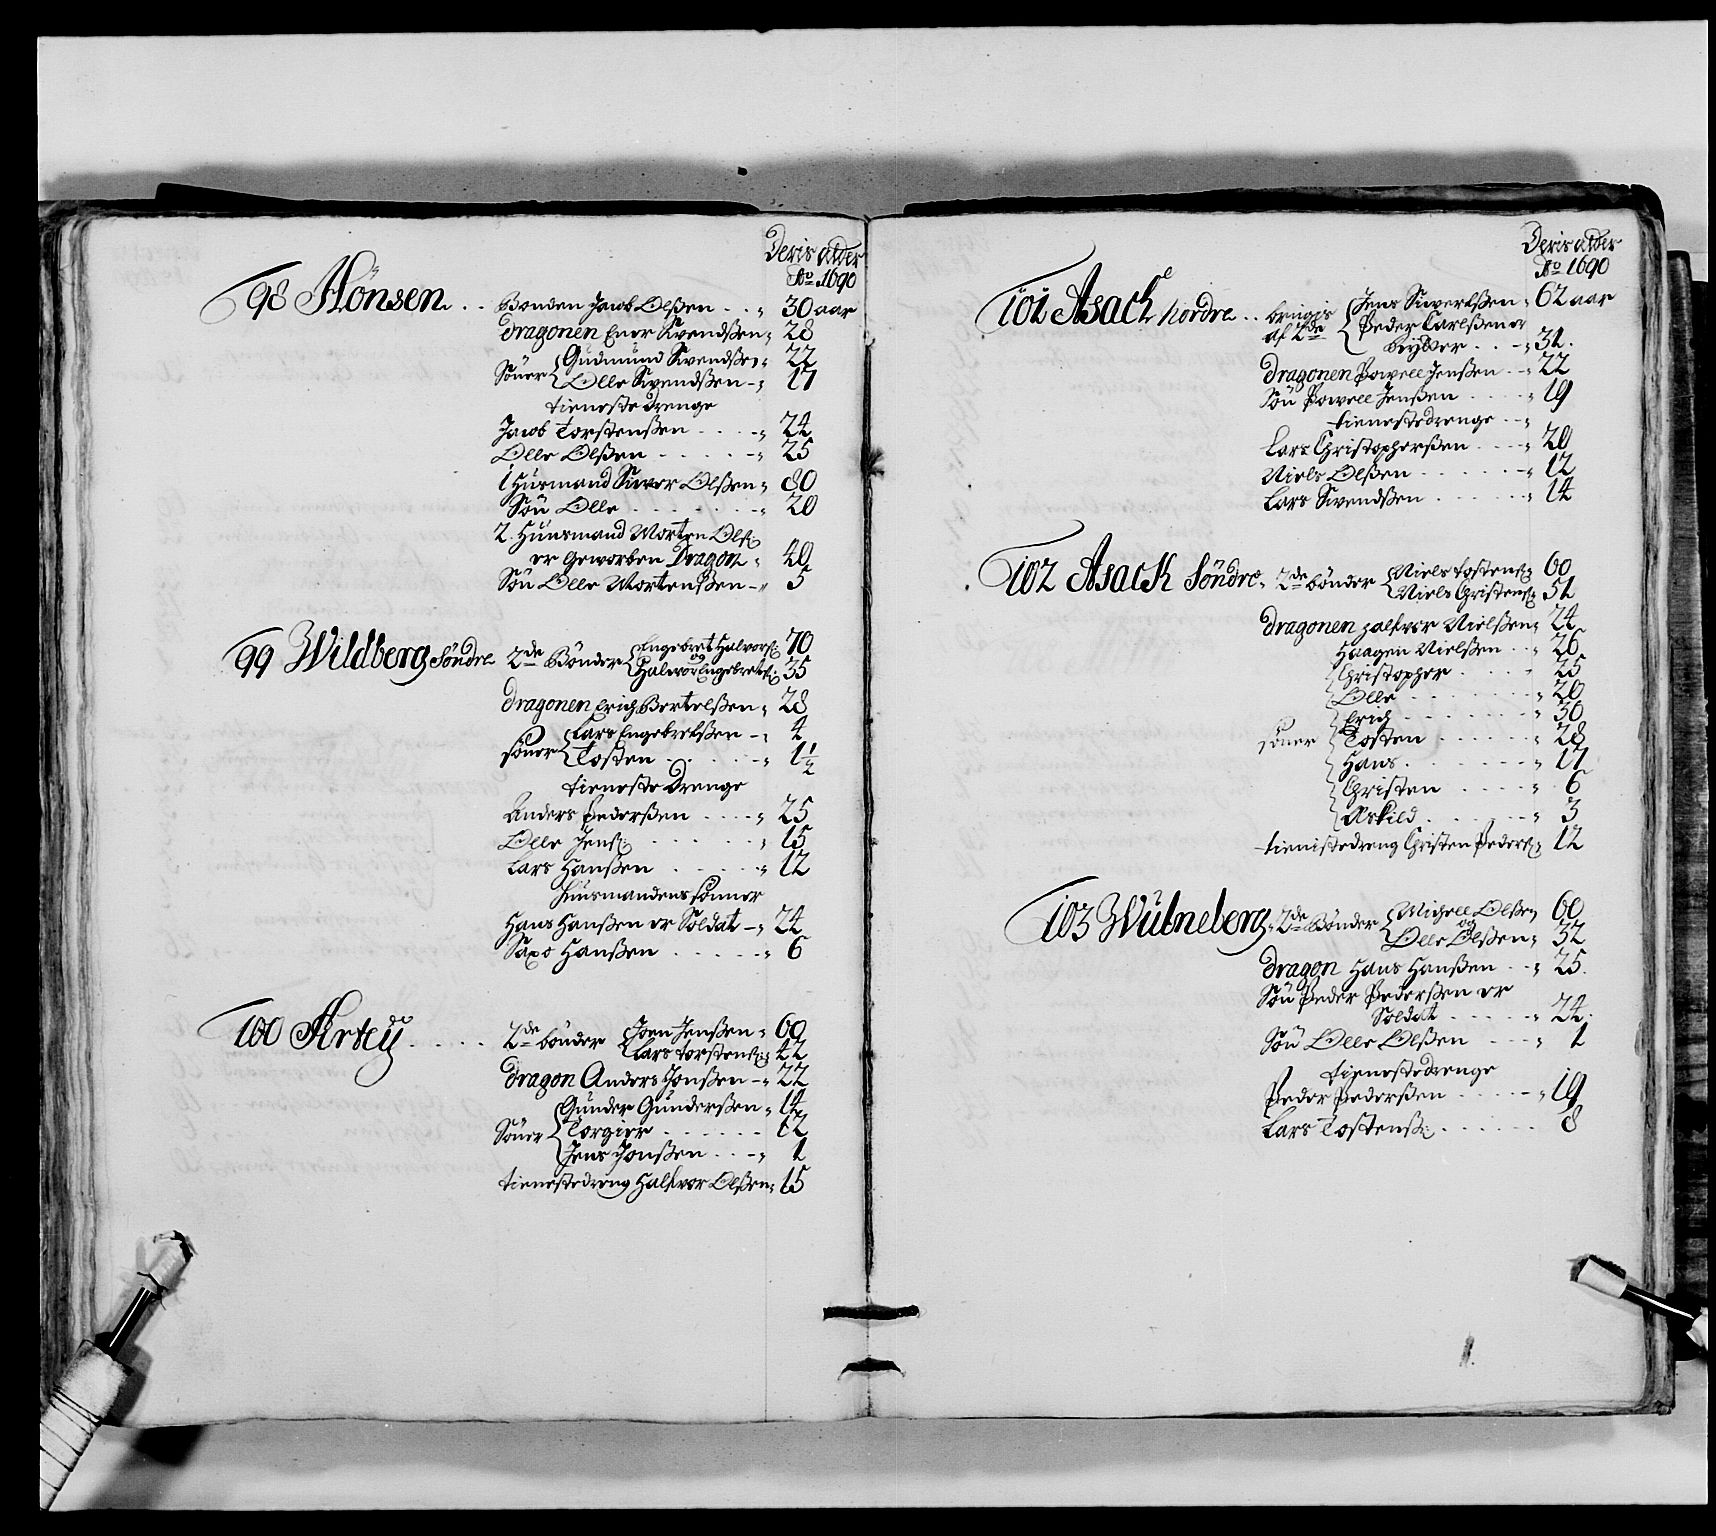 Deris alder
Ao 1690
98 Hönsen . . Bonden Jacob Olßen . . „ 30 aar
dragonen Ener Swendßen „ 28
Söner Gudmund Swendßen „ 22
Olle Swendßen „ 17
tieneste drenge
Jacob Torstenßen . . . . „ 24
Olle Olßen . . . . „ 25
1 Huusmand Siwer Olßen „ 80
Sön Olle . . . . „ 20
2. Huusmand Morten Olß:
er Geworben Dragon „ 40
Sön Olle Mortenßen „ 5
99 Wildberg Söndre 2de Bönder Engebret Halvorß: 70
og
Halvor Engebretß: 35
dragonen Erich Bertelßen „ 28
söner Lars Engebretßen „ 4
Tosten . . . . „ 1 1/2
tieneste Drenge
Anders Pederßen . . . . „ 25
Olle Jenß: . . . . „ 15
Lars Hanßen . . . . „ 12
Huusmandens sönner
Hans Hanßen er Soldat „ 24
Saxo Hanßen . . . . „ 6
100 Artey . . . . 2de bönder Joen Jenßen „ 60
Lars Torstenß: „ 42
dragon Anders Jonßen „ 22
Söner Gunder Gunderßen „ 14
Torgier . . . . 12
Jens Jonßen . . „ 1
tienestedreng Halfvor Olßen „ 15
Deris alder
Ao 1690
101 Asack Nordre . . brugis af 2de Jens Siwertßen „ 62 aar
Peder Carlßen er
Rytter . . „ 31.
dragonen Powell Jenßen . . „ 22
Sön Powell Jenßen . . . . „ 19
tienestedrenge . . „
Lars Christopherßen . . . „ 20
Niels Olßen . . . . „ 12
Lars Swendßen . . . . „ 14
102 Asack Söndre „ 2de bönder Niels Tostenß: 60
Niels Christenß: 51
dragonen Halfvor Nielßen „ 24
söner Haagen Nielßen . . „ 26
Christopher . . . „ 25
Olle . . . . „ 20
Erich . . . . „ 30
Tosten . . . . „ 28
Hans . . . . „ 17
Christen . . . . „ 6
Askild . . . . „ 3
tienistedreng Christen Pederß: „ 12
103 Wülneberg „ 2de Bönder Michell Olßen 60
og
Olle Olßen „ 32
dragon Hans Hanßen . . „ 25.
Sön Peder Pederßen er
Soldat . . . . „ 24.
Sön Olle Olßen . . . „ 1
tienestedrenge
Peder Pederßen . . . . „ 19
Lars Tostenß: . . . . 8